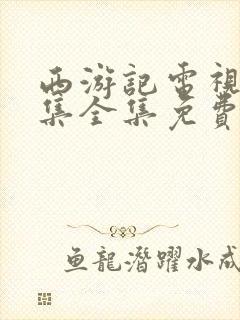 西游記電視
集全集免費
鱼龍潛躍水成